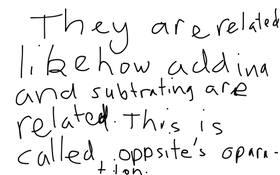 They are related
like how adding
and subtrating are
related. This is
called opposite's opara-
tion.